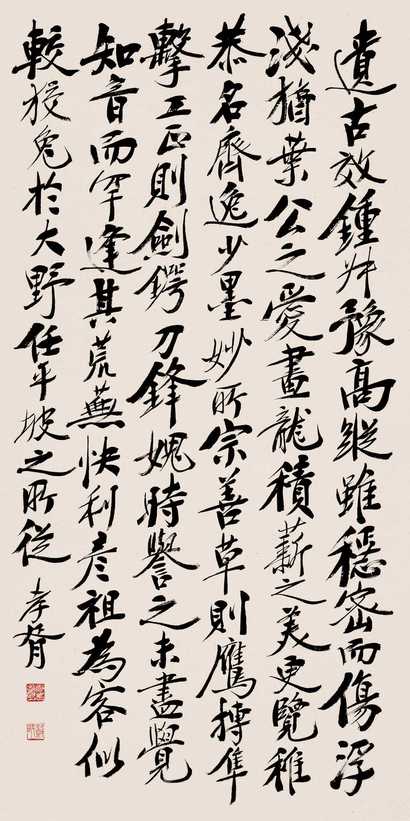 遺古效鍾草豫高縱雖穩密而傷浮
淺猶葉公之愛畫龍積薪之美更覽稚
恭名齊逸少墨妙所宗善草則鷹摶隼
擊工正則劍鍔刀鋒媿時譽之未盡覺
知音而罕逢其荒蕪快利彥祖為容似
較狡兔於大野任平坡之所從
孝胥